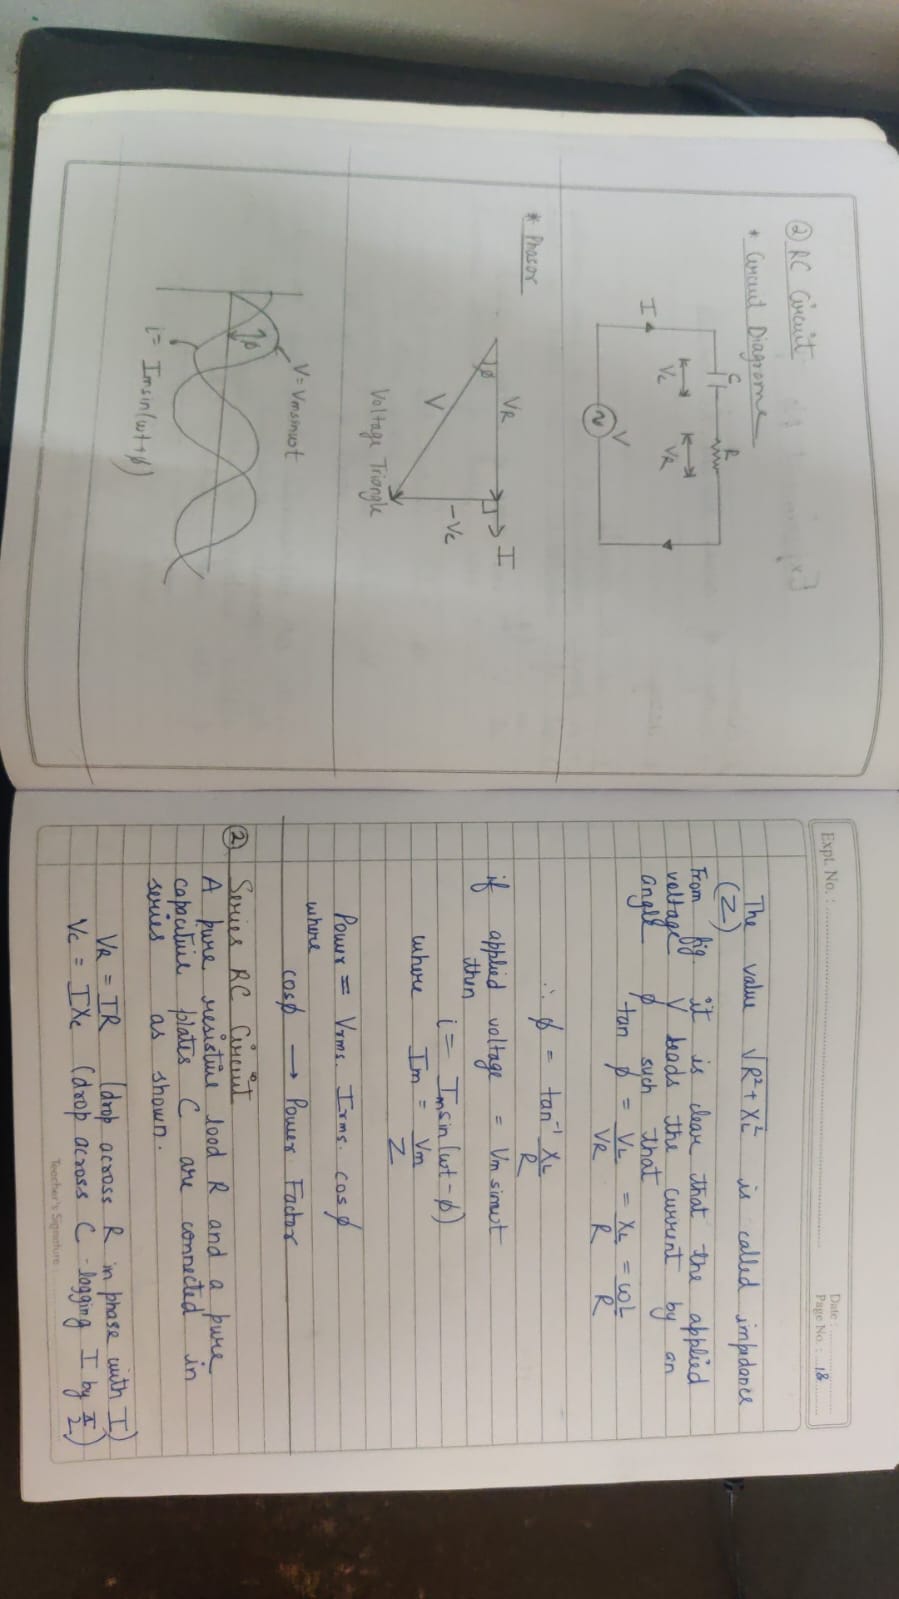 ② RC Circuit
* Circuit Diagrome
C
R
Vc
VR
I
V
* Phasor
VR
I
ϕ
V
-Vc
Voltage Triangle
V=Vmsinwt
ϕ
i= Imsin(wt+ϕ)
Expt. No. :
Date :
Page No. : 18
The value √R²+XL² is called impedance
(Z)
From fig. it is clear that the applied
voltage V leads the current by an
angle ϕ such that
tan ϕ = VL/VR = XL/R = ωL/R
∴ ϕ = tan⁻¹ XL/R
if applied voltage = Vm sinwt
then
i = Imsin(wt-ϕ)
where Im = Vm/Z
Power = Vrms. Irms. cosϕ
where
cosϕ → Power Factor
② Series RC Circuit
A pure resistive load R and a pure
capacitive plates C are connected in
series as shown.
VR = IR (drop across R in phase with I)
Vc = IXc (drop across C - lagging I by π/2)
Teacher's Signature